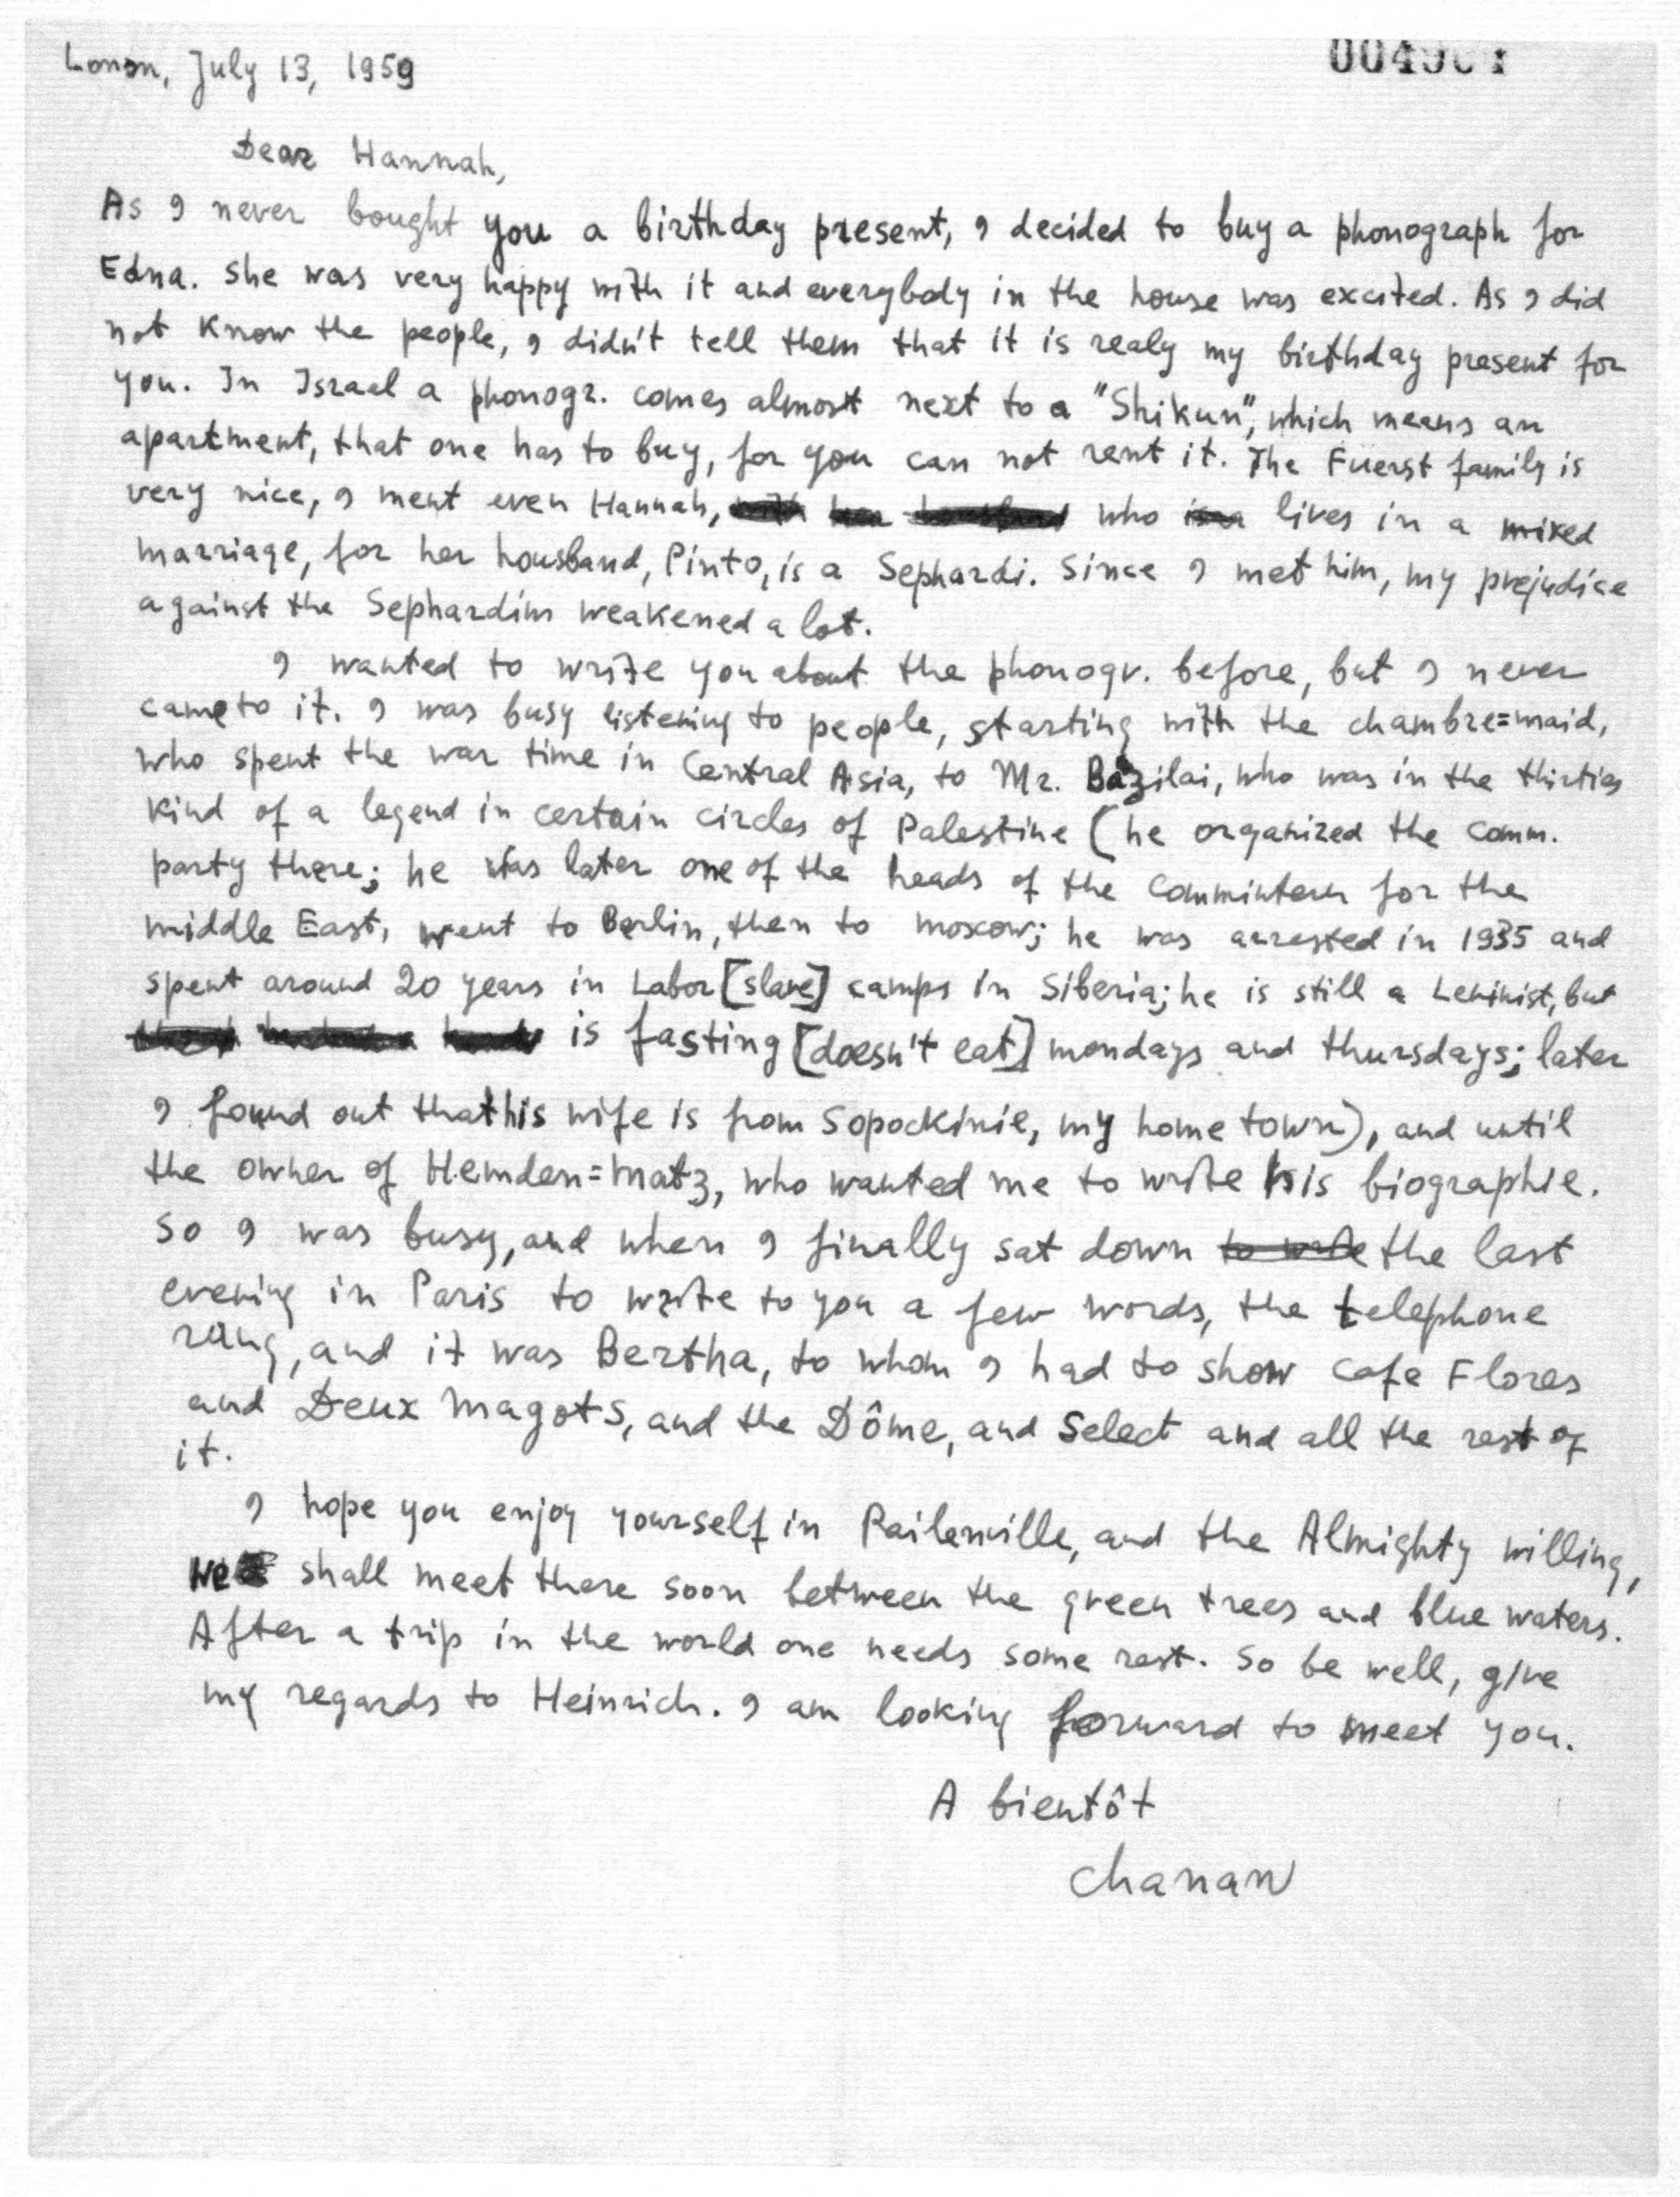 Lonon, July 13, 1959
Dear Hannah,
As I never bought you a birthday present, I decided to buy a phonograph for
Edna. She was very happy with it and everybody in the house was excited. As I did
not know the people, I didn't tell them that it is realy my birthday present for
you. In Israel a phonogr. comes almost next to a "Shikun", which means an
apartment, that one has to buy, for you can not rent it. The Fuerst family is
very nice, I ment even Hannah, who lives in a mixed
marriage, for her housband, Pinto, is a Sephardi. Since I met him, my prejudice
against the Sephardim weakened a lot.
I wanted to write you about the phonogr. before, but I never
came to it. I was busy listening to people, starting with the chambre=maid,
who spent the war time in Central Asia, to Mr. Bazilai, who was in the thirties
kind of a legend in certain circles of Palestine (he organized the comm.
party there; he was later one of the heads of the Commintern for the
middle East, went to Berlin, then to moscow; he was arrested in 1935 and
spent around 20 years in Labor [slave] camps in Siberia; he is still a Leninist, but
is fasting [doesn't eat] mondays and thursdays; later
I found out that his wife is from Sopockinie, my home town), and until
the owner of Hemden=Matz, who wanted me to write his biographie.
So I was busy, and when I finally sat down to write the last
evening in Paris to write to you a few words, the telephone
rang, and it was Bertha, to whom I had to show Cafe Flores
and Deux Magots, and the Dôme, and Select and all the rest of
it.
I hope you enjoy yourself in Pailenville, and the Almighty willing,
we shall meet there soon between the green trees and blue waters.
After a trip in the world one needs some rest. So be well, give
my regards to Heinrich. I am looking forward to meet you.
A bientôt
Chanan